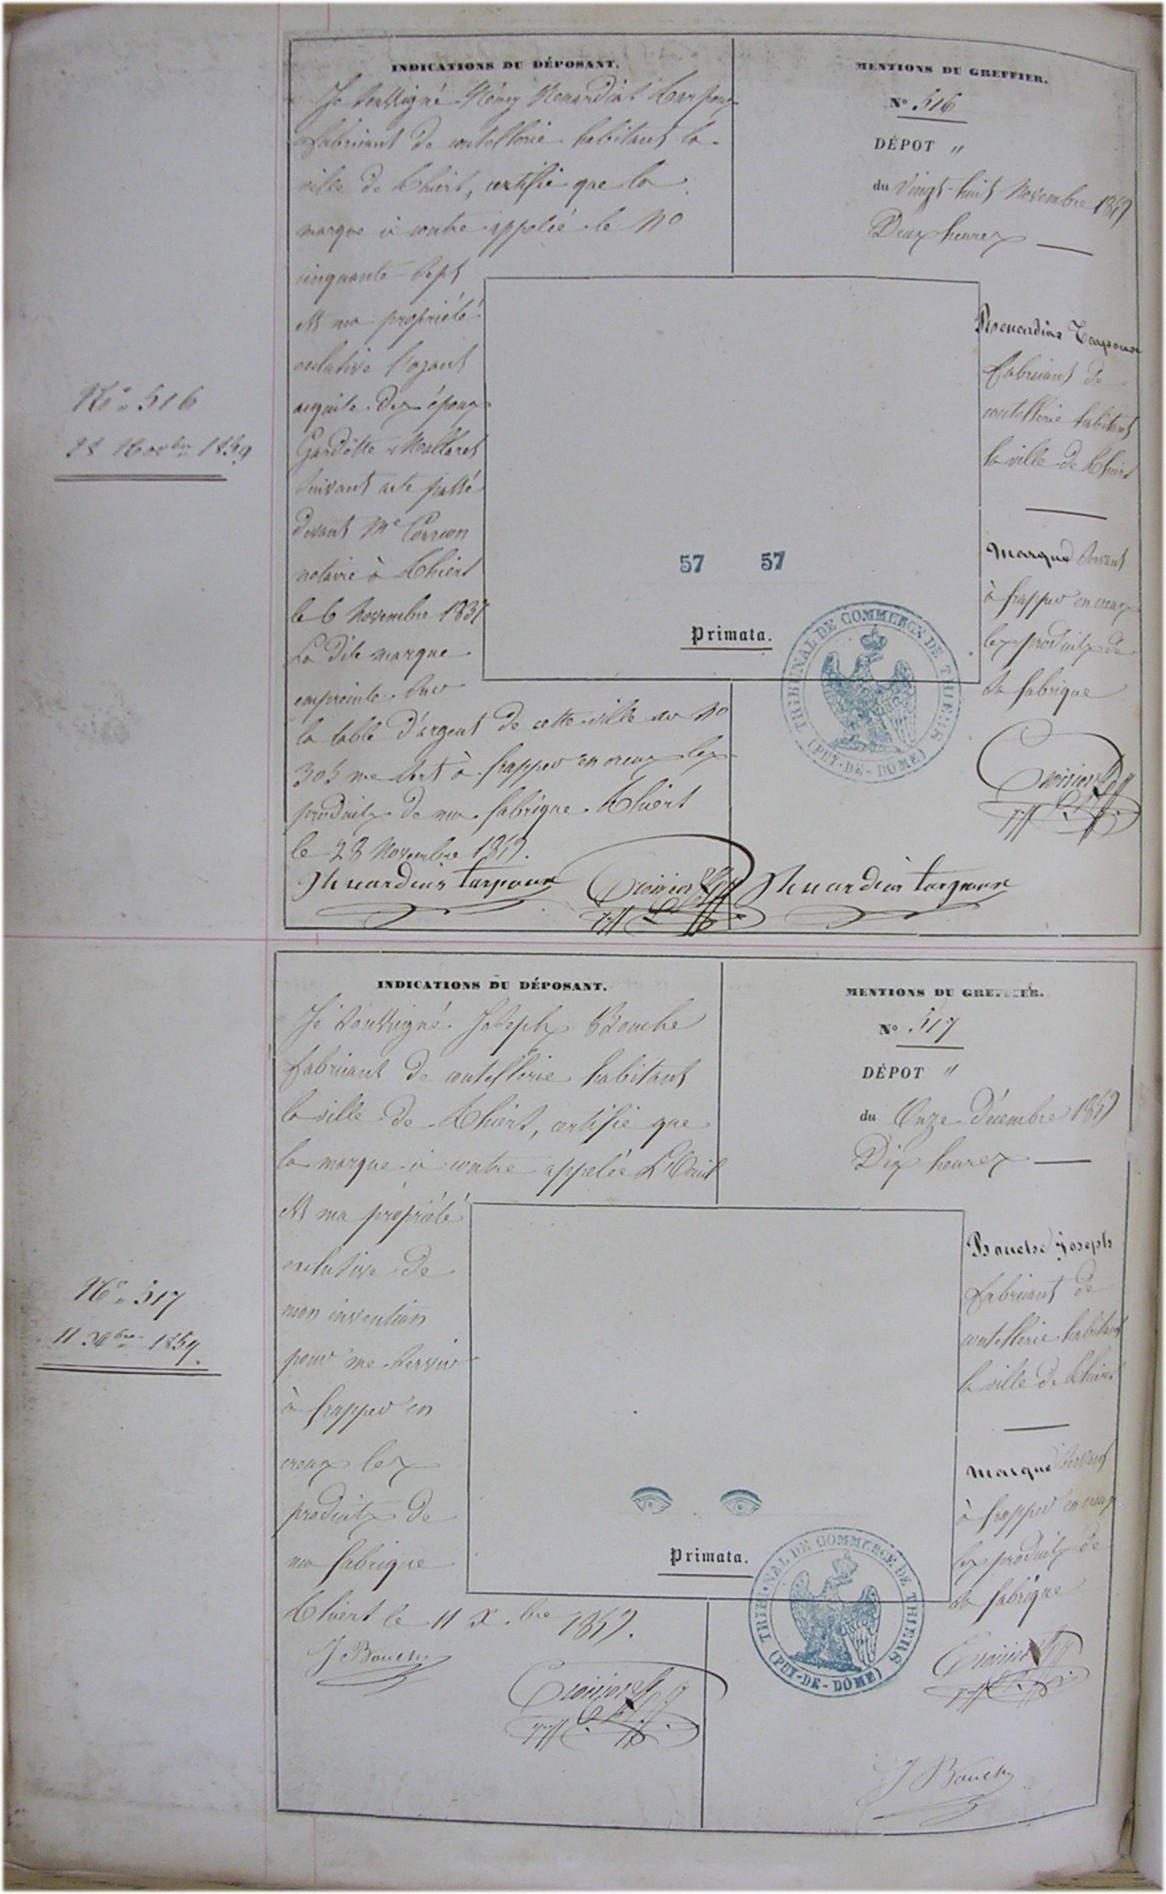 N° 516
28 Novbre 1859
INDICATIONS DU DÉPOSANT.
Je soussigné Rémy Renardias Tarpoux
fabricant de coutellerie habitant la
ville de Thiers, certifie que la
marque ci contre appelée le No
cinquante-sept
est ma propriété
exclusive l'ayant
acquise des époux
suivant acte passé
devant Me
notaire à Thiers
le 6 Novembre 1837
La dite marque
empreinte sur
la table d'argent de cette ville au No
305 me sert à frapper en creux les
produits de ma fabrique Thiers
le 28 Novembre 1859.
Renardias tarpoux
MENTIONS DU GREFFIER.
N° 516
DÉPOT "
du Vingt-huit Novembre 1859
Deux heures
Renardias Tarpoux
fabricant de
coutellerie habitant
la ville de Thiers
Marque servant
à frapper en creux
les produits de
sa fabrique
57 57
Primata.
TRIBUNAL DE COMMERCE DE THIERS
(PUY-DE-DÔME)
Renardias tarpoux
N° 517
11 Xbre 1859.
INDICATIONS DU DÉPOSANT.
Je soussigné Joseph Bouche
fabricant de coutellerie habitant
la ville de Thiers, certifie que
la marque ci contre appelée L'Oeuil
est ma propriété
exclusive de
mon invention
pour me servir
à frapper en
creux les
produits de
ma fabrique
Thiers le 11 Xbre 1859.
J Bouche
MENTIONS DU GREFFIER.
N° 517
DÉPOT "
du Onze décembre 1859
Dix heures
Bouche Joseph
fabricant de
coutellerie habitant
la ville de Thiers
Marque servant
à frapper en creux
les produits de
sa fabrique
Primata.
TRIBUNAL DE COMMERCE DE THIERS
(PUY-DE-DÔME)
J Bouche